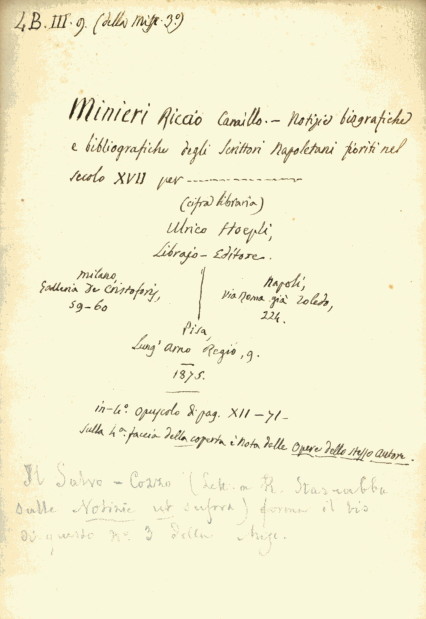 4B. III. 9. (della Misc. 3º)
Minieri Riccio Camillo. — Notizie biografiche
e bibliografiche degli Scrittori Napoletani fioriti nel
secolo XVII per
(cifra libraria)
Ulrico Hoepli,
Librajo-Editore.
Milano,
Galleria De Cristoforis,
59-60
Napoli,
Via Roma già Toledo,
224.
Pisa,
Lung' Arno Regio, 9.
1875.
in-4º. opuscolo di pag. XII-71-
Sulla 4ª. faccia della coperta è Nota delle Opere dello stesso Autore.
Il Salvo-Cozzo (Lett. a R. Starrabba
sulle Notizie ut supra) forma il bis
di questo nº. 3 della Misc.